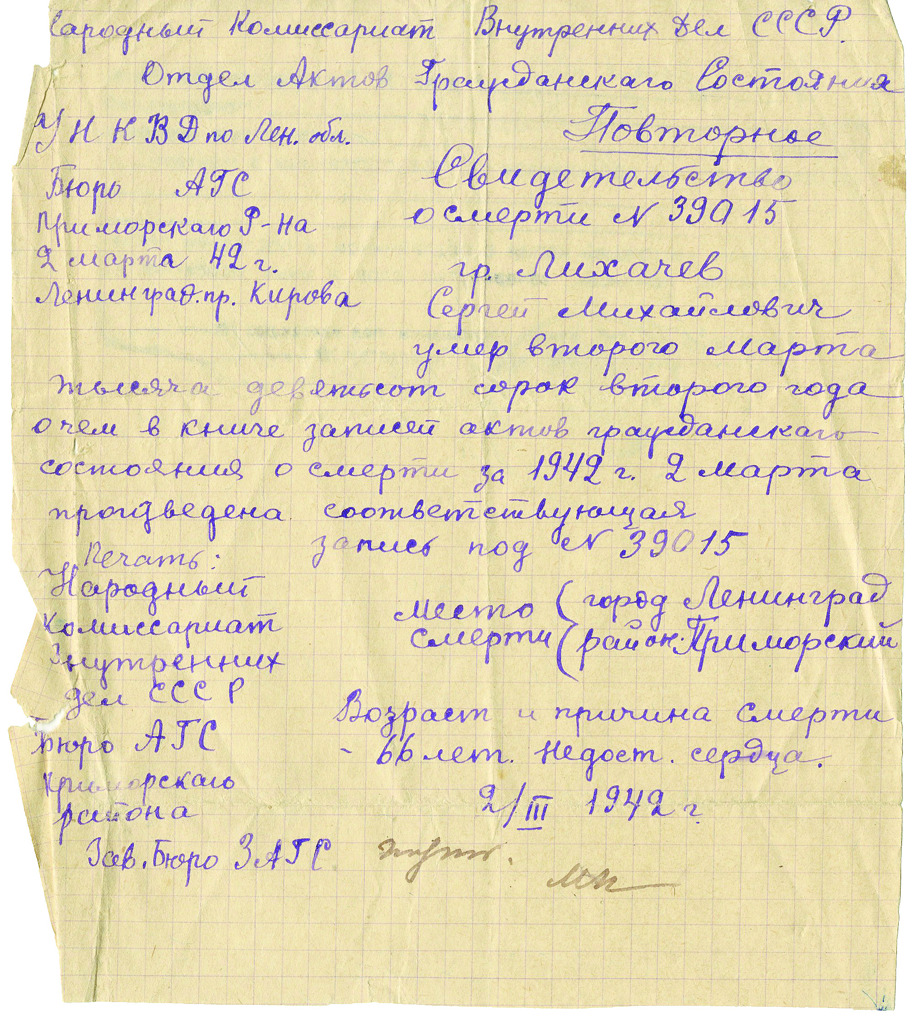 Народный Комиссариат Внутренних Дел СССР.
Отдел Актов Гражданскаго Состояния
У Н К В Д по Лен. обл.
Повторное
Бюро АГС
Свидетельство
Приморскаго Р-на
о смерти N 39015
2 марта 42 г.
гр. Лихачев
Ленинград. пр. Кирова
Сергей Михайлович
умер второго Марта
тысяча девятьсот сорок второго года
о чем в книге записей актов гражданскаго
состояния о смерти за 1942 г. 2 марта
произведена соответствующая
запись под N 39015
Печать:
Народный
Комиссариат
Внутренних
дел СССР
Бюро АГС
Приморскаго
района
Место (город Ленинград
смерти (район: Приморский
Возраст и причина смерти
- 66 лет. Недост. сердца.
2/III 1942 г.
Зав. Бюро ЗАГС